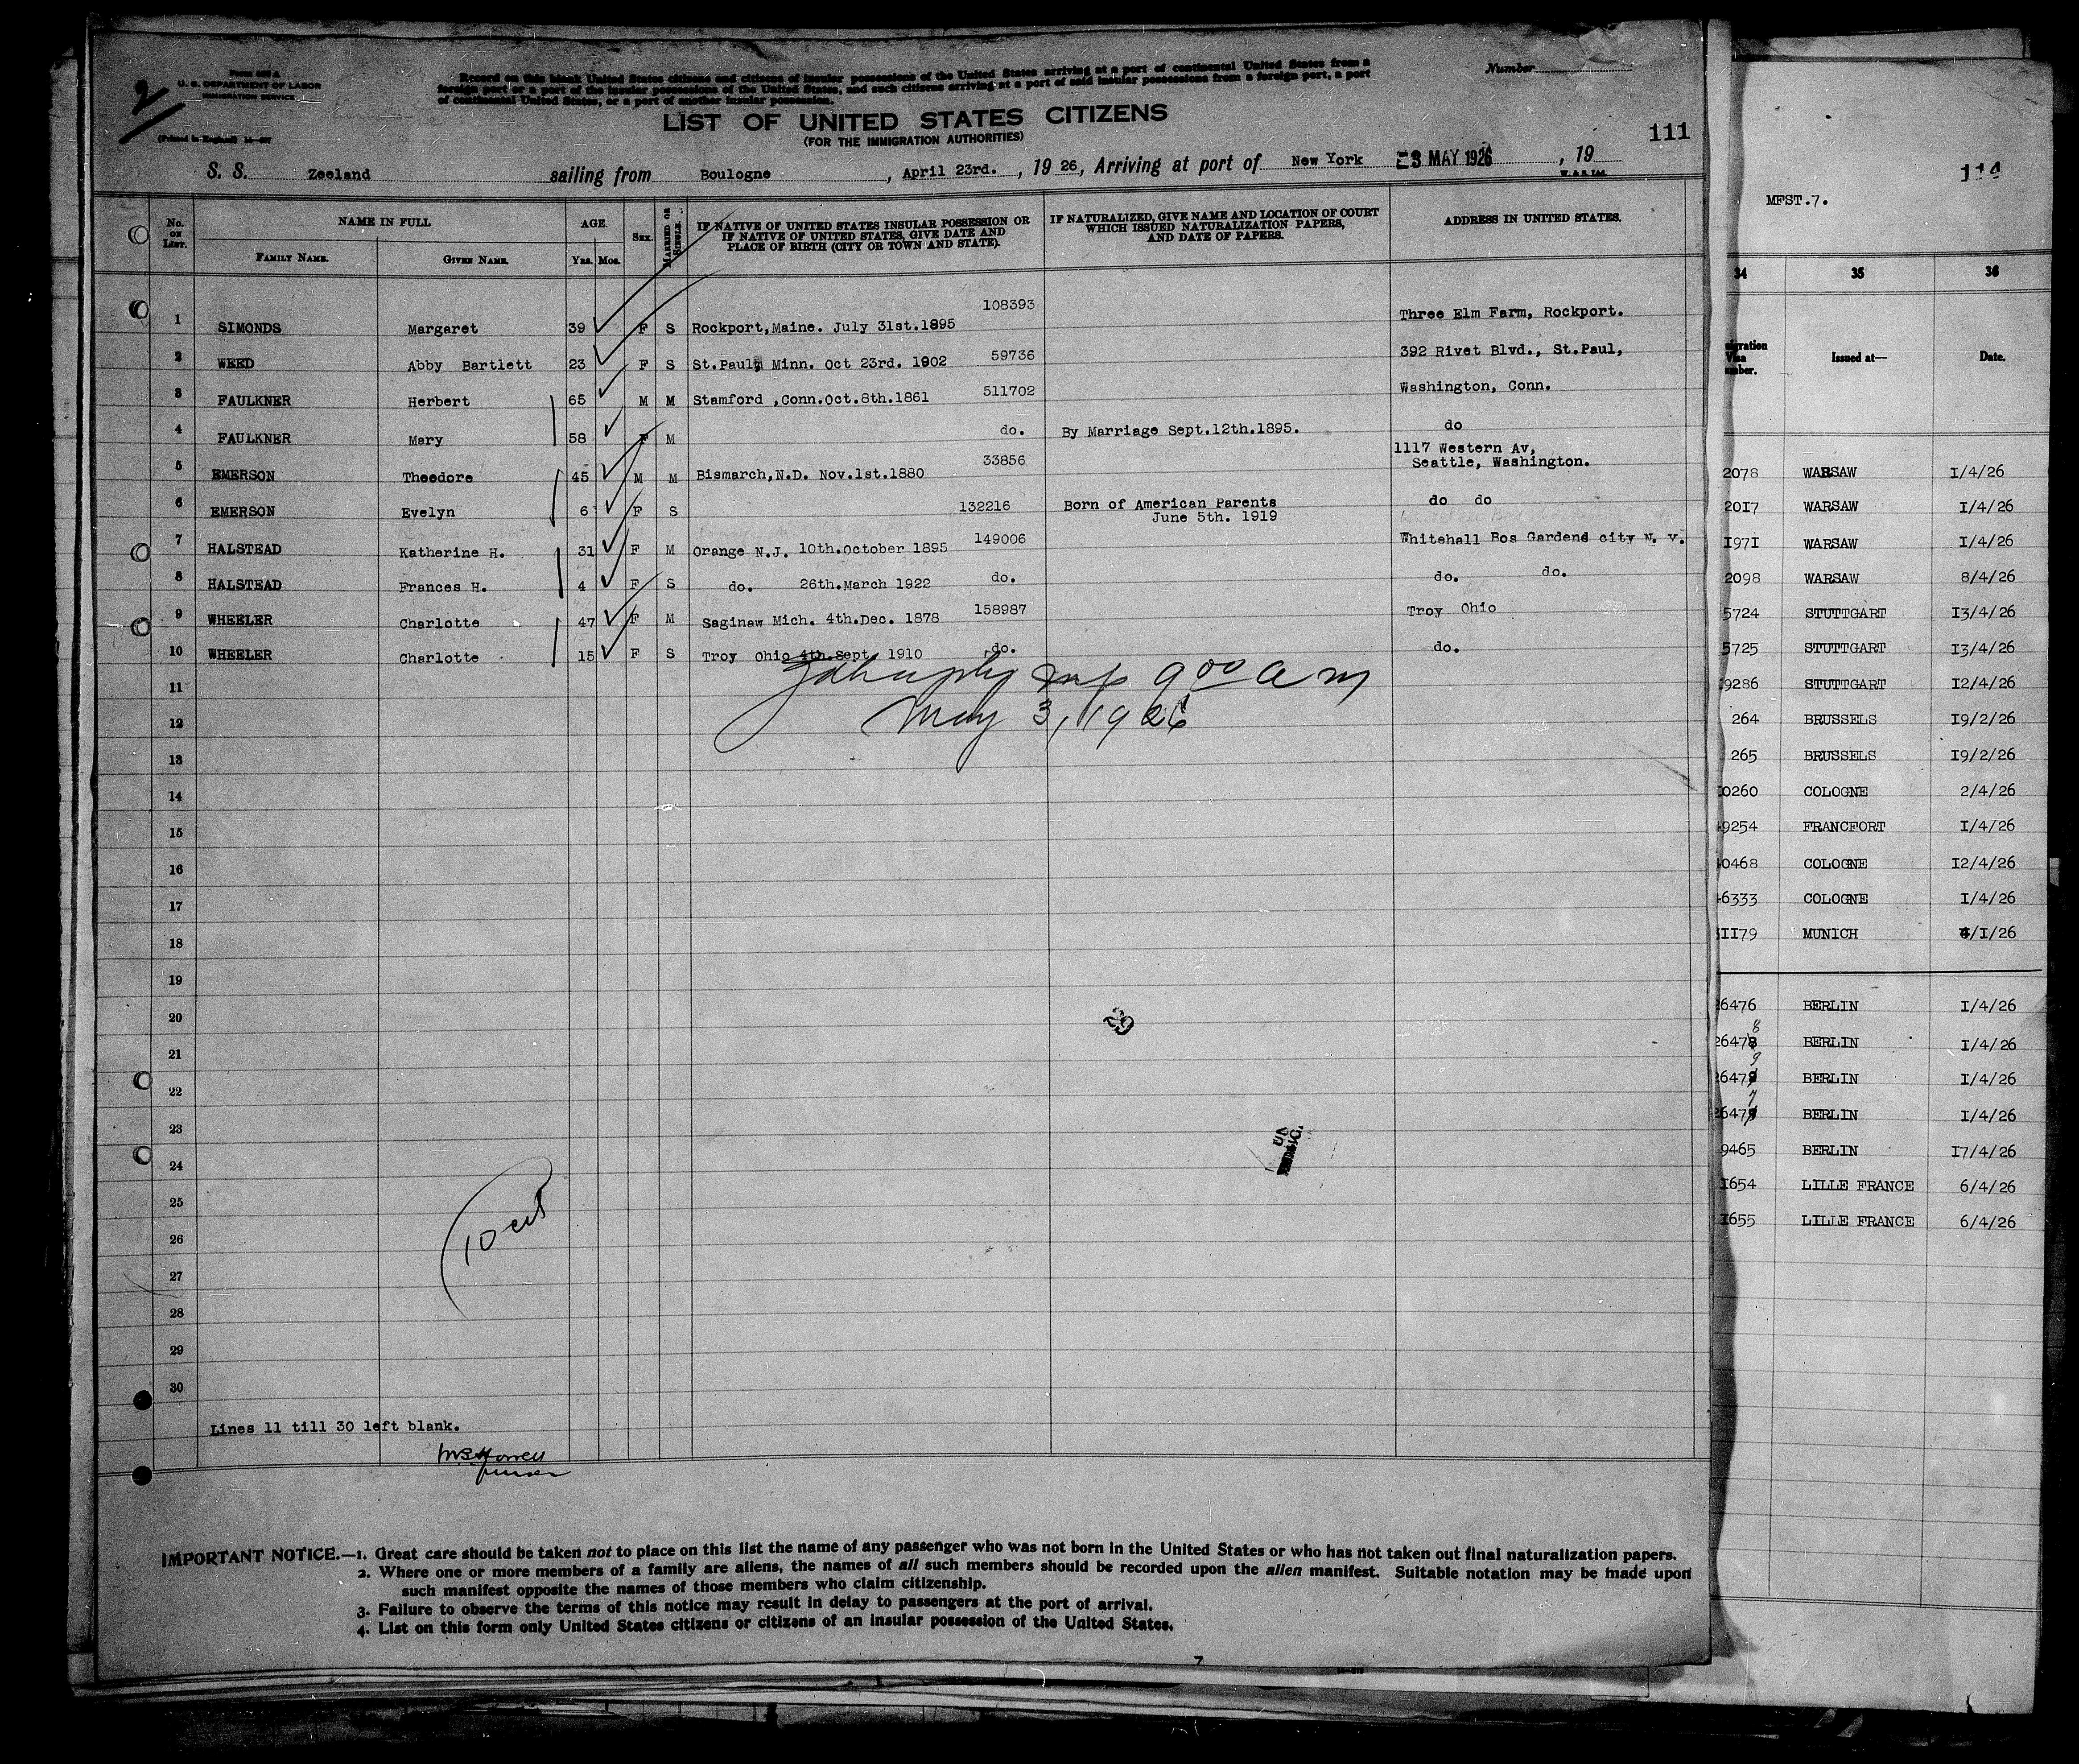 2
Form 630 A
U. S. DEPARTMENT OF LABOR
IMMIGRATION SERVICE
(Printed in England)
Record on this blank United States citizens and citizens of insular possessions of the United States arriving at a port of continental United States from a
foreign port or a port of the insular possessions of the United States, and such citizens arriving at a port of said insular possessions from a foreign port, a port
of continental United States, or a port of another insular possession.
Number
LIST OF UNITED STATES CITIZENS
(FOR THE IMMIGRATION AUTHORITIES)
111
S. S. Zeeland sailing from Boulogne, April 23rd., 19 26, Arriving at port of New York 3 MAY 1926, 19
No. ON LIST. NAME IN FULL FAMILY NAME. GIVEN NAME. AGE. YRS. MOS. SEX. MARRIED OR SINGLE. IF NATIVE OF UNITED STATES INSULAR POSSESSION OR IF NATIVE OF UNITED STATES, GIVE DATE AND PLACE OF BIRTH (CITY OR TOWN AND STATE). IF NATURALIZED, GIVE NAME AND LOCATION OF COURT WHICH ISSUED NATURALIZATION PAPERS, AND DATE OF PAPERS. ADDRESS IN UNITED STATES.
1 SIMONDS Margaret 39 F S Rockport, Maine. July 31st.1895 108393 Three Elm Farm, Rockport.
2 WEED Abby Bartlett 23 F S St.Paul, Minn. Oct 23rd. 1902 59736 392 Rivet Blvd., St.Paul,
3 FAULKNER Herbert 65 M M Stamford ,Conn.Oct.8th.1861 511702 Washington, Conn.
4 FAULKNER Mary 58 F M do. By Marriage Sept.12th.1895. do
5 EMERSON Theodore 45 M M Bismarch,N.D. Nov.1st.1880 33856 1117 Western Av, Seattle, Washington.
6 EMERSON Evelyn 6 F S 132216 Born of American Parents June 5th. 1919 do do
7 HALSTEAD Katherine H. 31 F M Orange N.J. 10th.October 1895 149006 Whitehall Bos Gardend city N. Y.
8 HALSTEAD Frances H. 4 F S do. 26th.March 1922 do. do. do.
9 WHEELER Charlotte 47 F M Saginaw Mich. 4th.Dec. 1878 158987 Troy Ohio
10 WHEELER Charlotte 15 F S Troy Ohio 4th.Sept. 1910 do. do.
9 00 am
May 3, 1926
11
12
13
14
15
16
17
18
19
20
21
22
23
24
25
26
27
28
29
30
29
10 cit
Lines 11 till 30 left blank.
Purser
IMPORTANT NOTICE.—1. Great care should be taken not to place on this list the name of any passenger who was not born in the United States or who has not taken out final naturalization papers.
2. Where one or more members of a family are aliens, the names of all such members should be recorded upon the alien manifest. Suitable notation may be made upon
such manifest opposite the names of those members who claim citizenship.
3. Failure to observe the terms of this notice may result in delay to passengers at the port of arrival.
4. List on this form only United States citizens or citizens of an insular possession of the United States.
7
MFST.7.
114
34 35 36
Issued at— Date.
2078 WARSAW 1/4/26
2017 WARSAW 1/4/26
1971 WARSAW 1/4/26
2098 WARSAW 8/4/26
5724 STUTTGART 13/4/26
5725 STUTTGART 13/4/26
9286 STUTTGART 12/4/26
264 BRUSSELS 19/2/26
265 BRUSSELS 19/2/26
0260 COLOGNE 2/4/26
9254 FRANCFORT 1/4/26
0468 COLOGNE 12/4/26
6333 COLOGNE 1/4/26
1179 MUNICH 4/1/26
26476 BERLIN 1/4/26
26478 BERLIN 1/4/26
26479 BERLIN 1/4/26
26477 BERLIN 1/4/26
9465 BERLIN 17/4/26
1654 LILLE FRANCE 6/4/26
1655 LILLE FRANCE 6/4/26